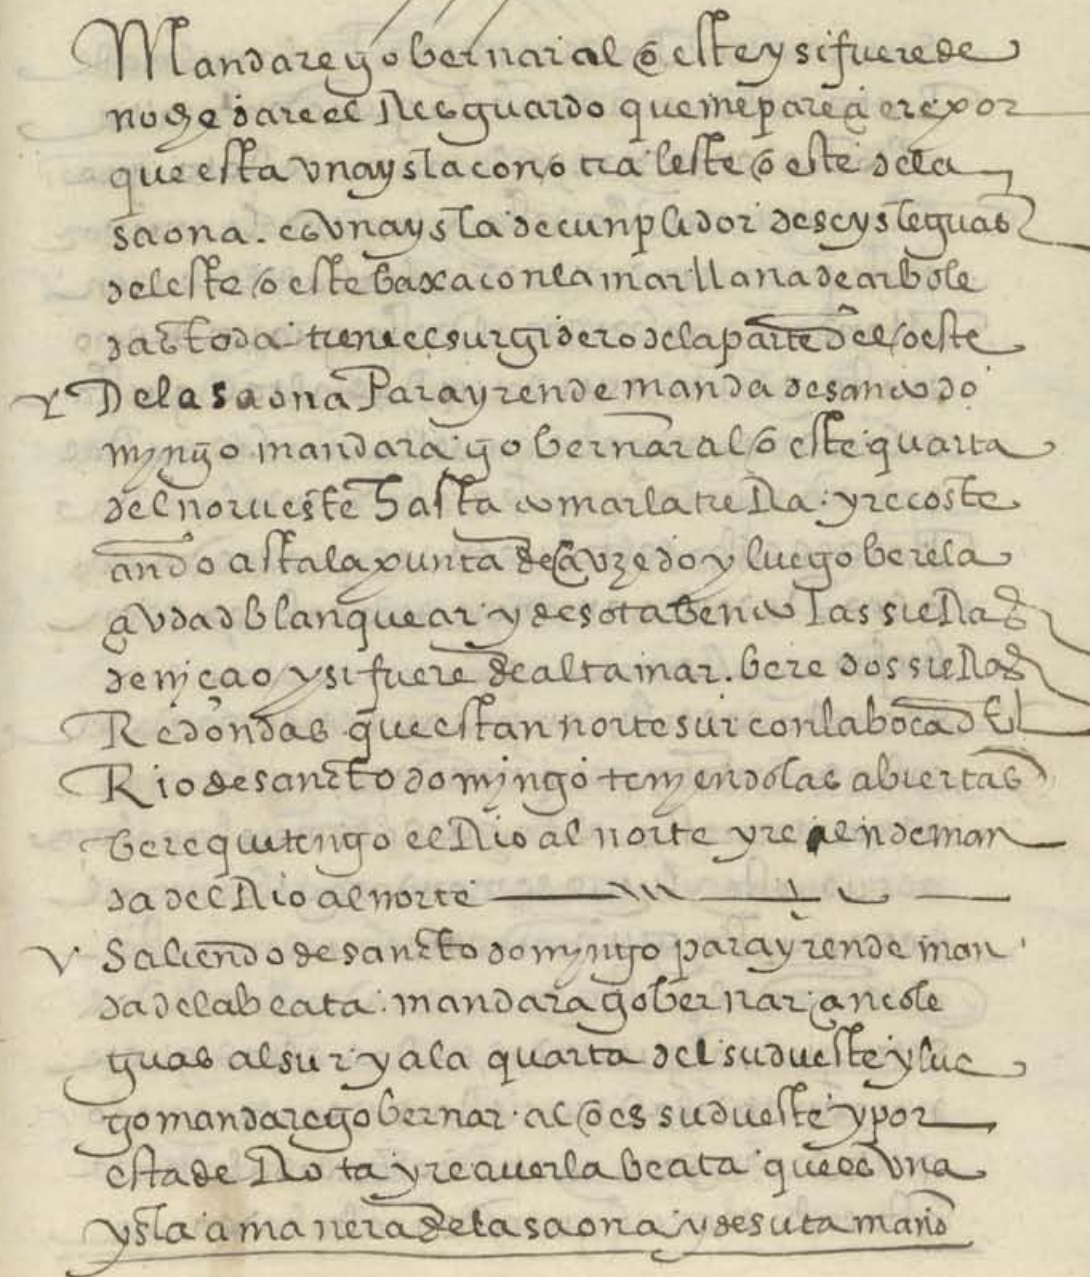 Mandare gobernar al oeste y si fuere de
noche dare el Resguardo que me pareçiere por
que esta vna ysla con otra leste oeste de la
saona. es vna ysla de cunplidor de seys leguas
del este oeste baxa con la mar llana de arbole
das toda tiene el surgidero de la parte del oeste
De la saona Para yr en demanda de sancto do
myngo mandara gobernar al oeste quarta
del norueste hasta tomar la tieRa. yre coste
ando asta la punta de Cauzedo y luego bere la
çiudad blanquear y de sotabento las sieRas
de niçao y si fuere de alta mar. bere dos sieRas
Redondas que estan norte sur con la boca del
Rio de sancto domingo tenyendolas abiertas
bere que tengo el Rio al norte yre en deman
da del Rio al norte
Saliendo de sancto domyngo para yr en deman
da de la beata. mandara gobernar çinco le
guas al sur y a la quarta del sudueste y lue
go mandare gobernar. al oes sudueste y por
esta deRota yre a uer la beata que es vna
ysla a manera de la saona y de su tamaño